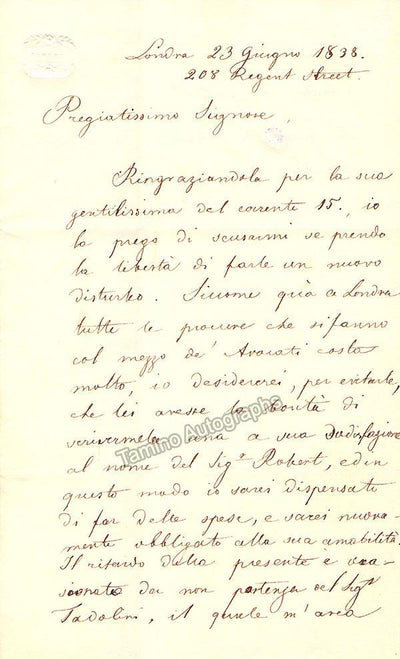 Londra 23 Giugno 1838.
208 Regent street.
Pregiatissimo Signore,
Ringraziandola per la sua
gentilissima del corrente 15., io
la prego di scusarmi se prendo
la libertà di farle un nuovo
disturbo. Siccome quà a Londra
tutte le procure che si fanno
col mezzo de' Avocati costa
molto, io desiderei, per evitarle,
che lei avesse la bontà di
scrivermela una a sua Sodisfazione
al nome del Sigr. Robert, ed in
questo modo io sarei dispensato
di far delle spese, e sarei nuova-
mente obbligato alla sua amabilità.
Il ritardo della presente è cca-
sionato da non partenza del Sigr.
Tadolini, il quale m'avea
Tamino Autographs